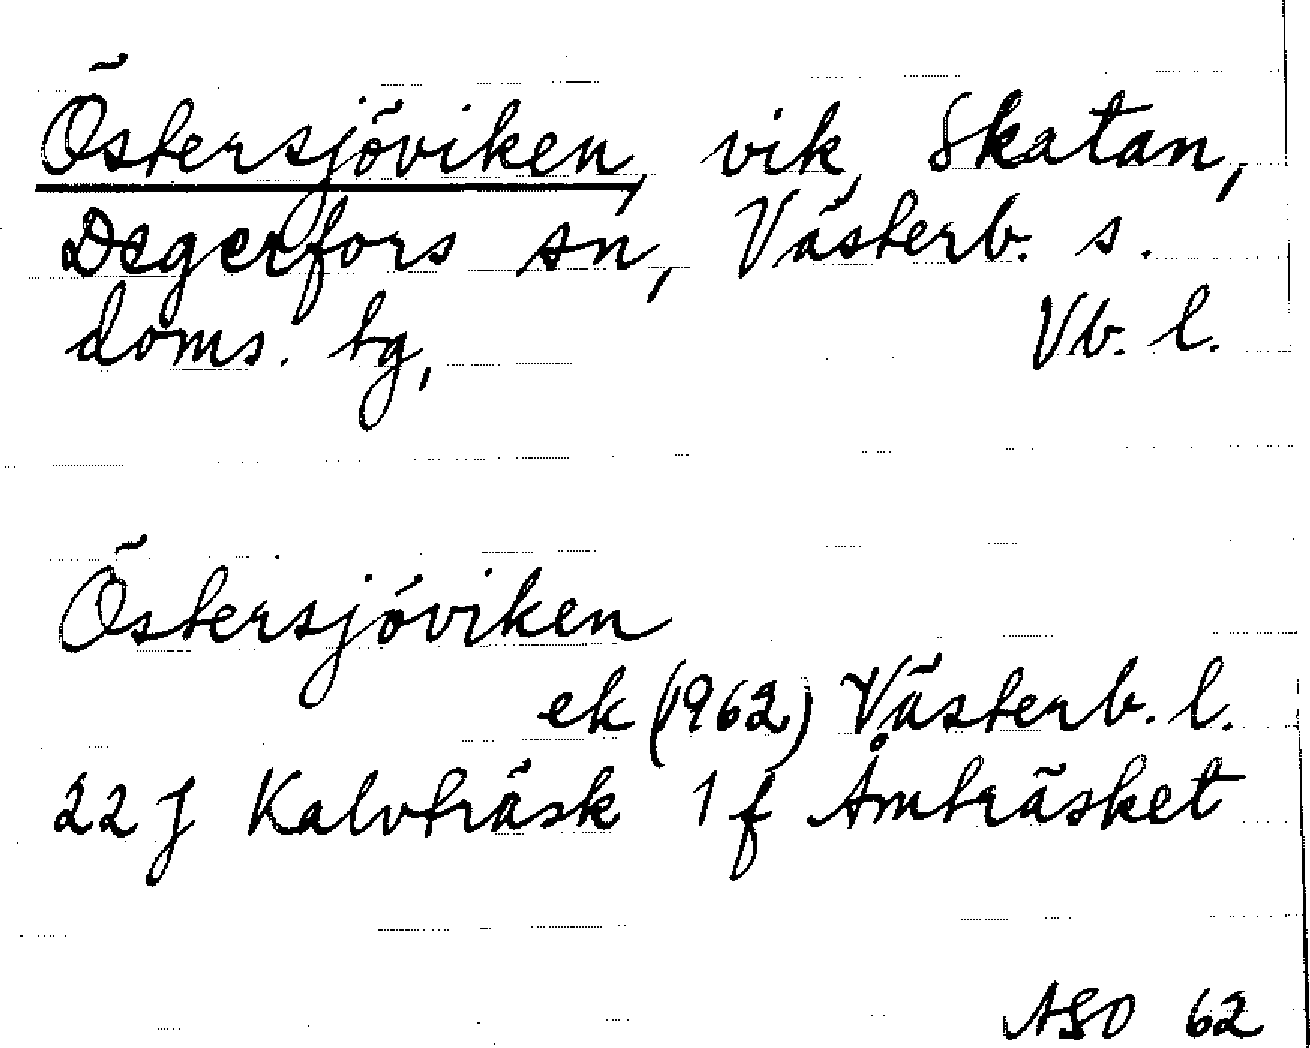 Östersjöviken, vik, Skatan,
Degerfors sn, Västerb. s.
doms. tg, Vb. l.
Östersjöviken
ek (1962) Västerb. l.
22 J Kalvträsk 1 f Åmträsket
ASO 62